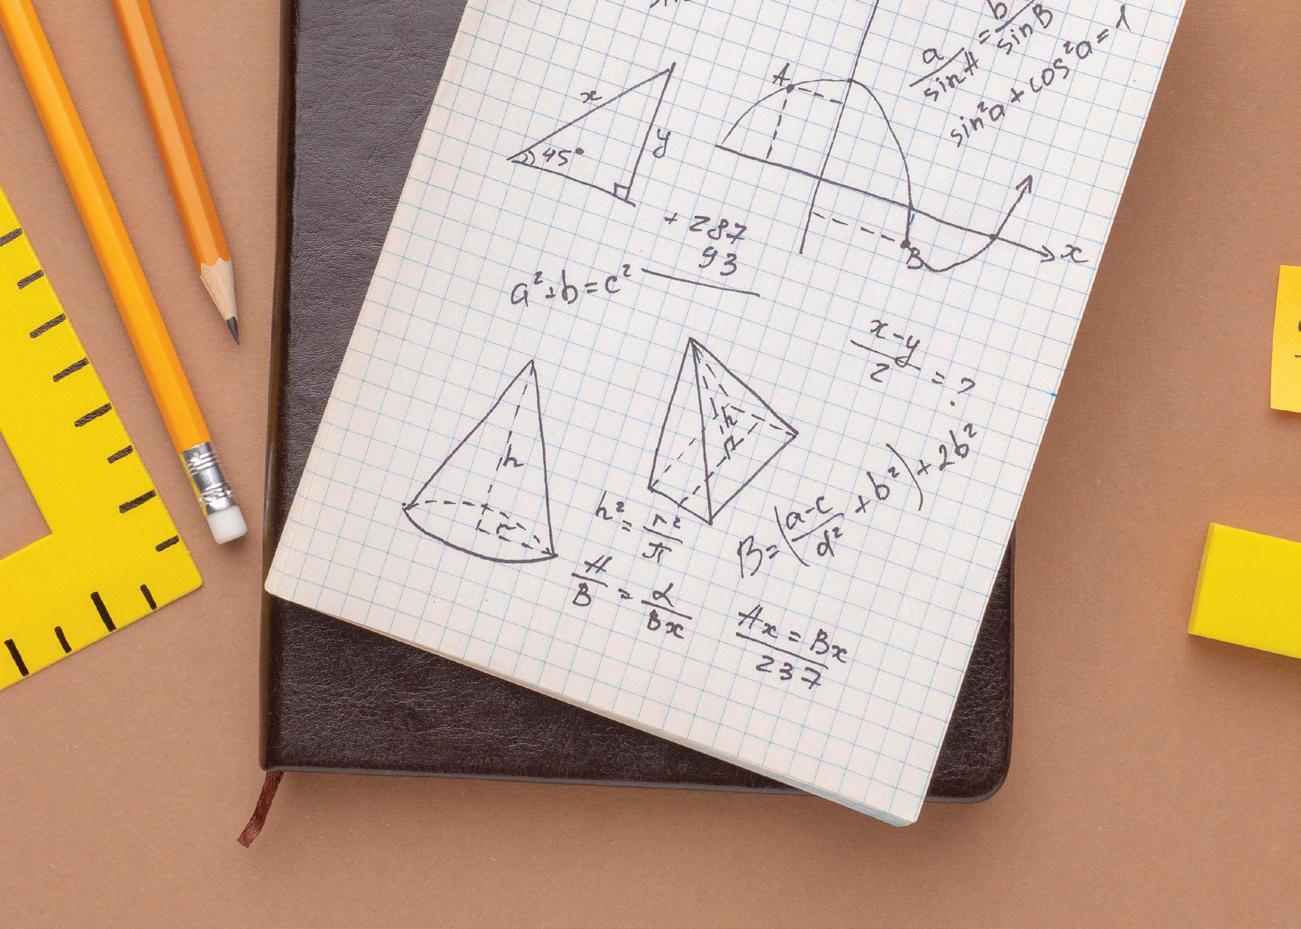 a/sin A = b/sin B
sin²a + cos²a = 1
A
x
y
45°
+ 287
93
B
x
a²+b=c²
x-y/2 = ?
h
r
h
h²= r²/π
B=(a-c/d² + b²)+2b²
A/B = α/Bx
Ax = Bx/237